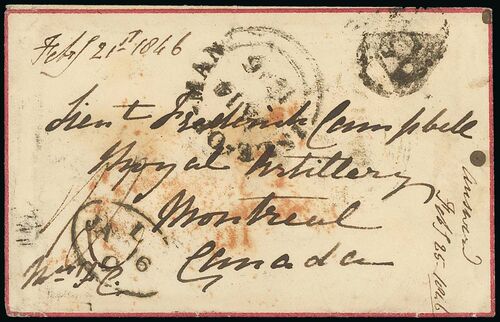 Feby 21st 1846
MAN
Lieut Frederick Campbell
Royal Artillery
Montreal
Canada
Answd
Feby 25 1846